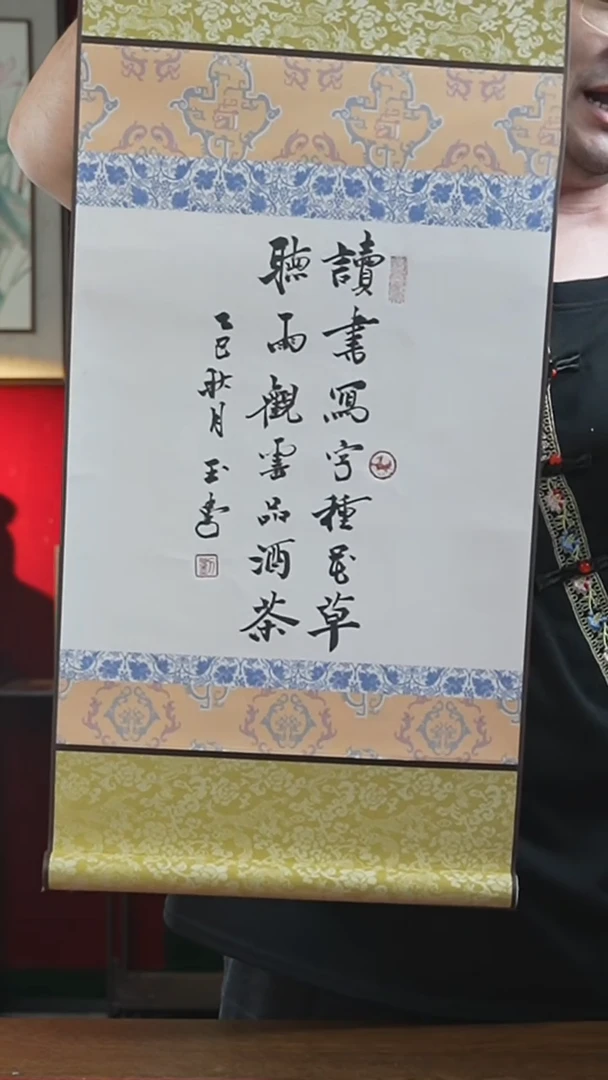 讀書寫字種花草
聽雨觀雲品酒茶
乙巳秋月 玉書